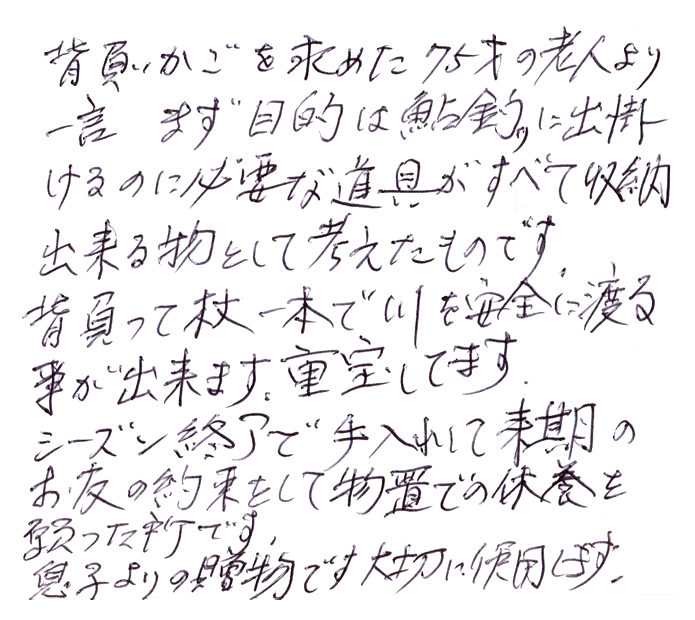 背負いかごを求めた75才の老人より
一言 まず目的は鮎釣りに出掛
けるのに必要な道具がすべて収納
出来る物として考えたものです
背負って杖一本で川を安全に渡る
事が出来ます。重宝してます。
シーズン終了で手入れして来期の
お友の約束をして物置での休養を
願った所です。
息子よりの贈物です大切に使用します。